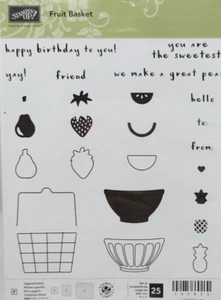 STAMPIN' UP!
Fruit Basket
happy birthday to you!
you are
the sweetest
yay!
friend
we make a great pear
hello
to:
from:
25